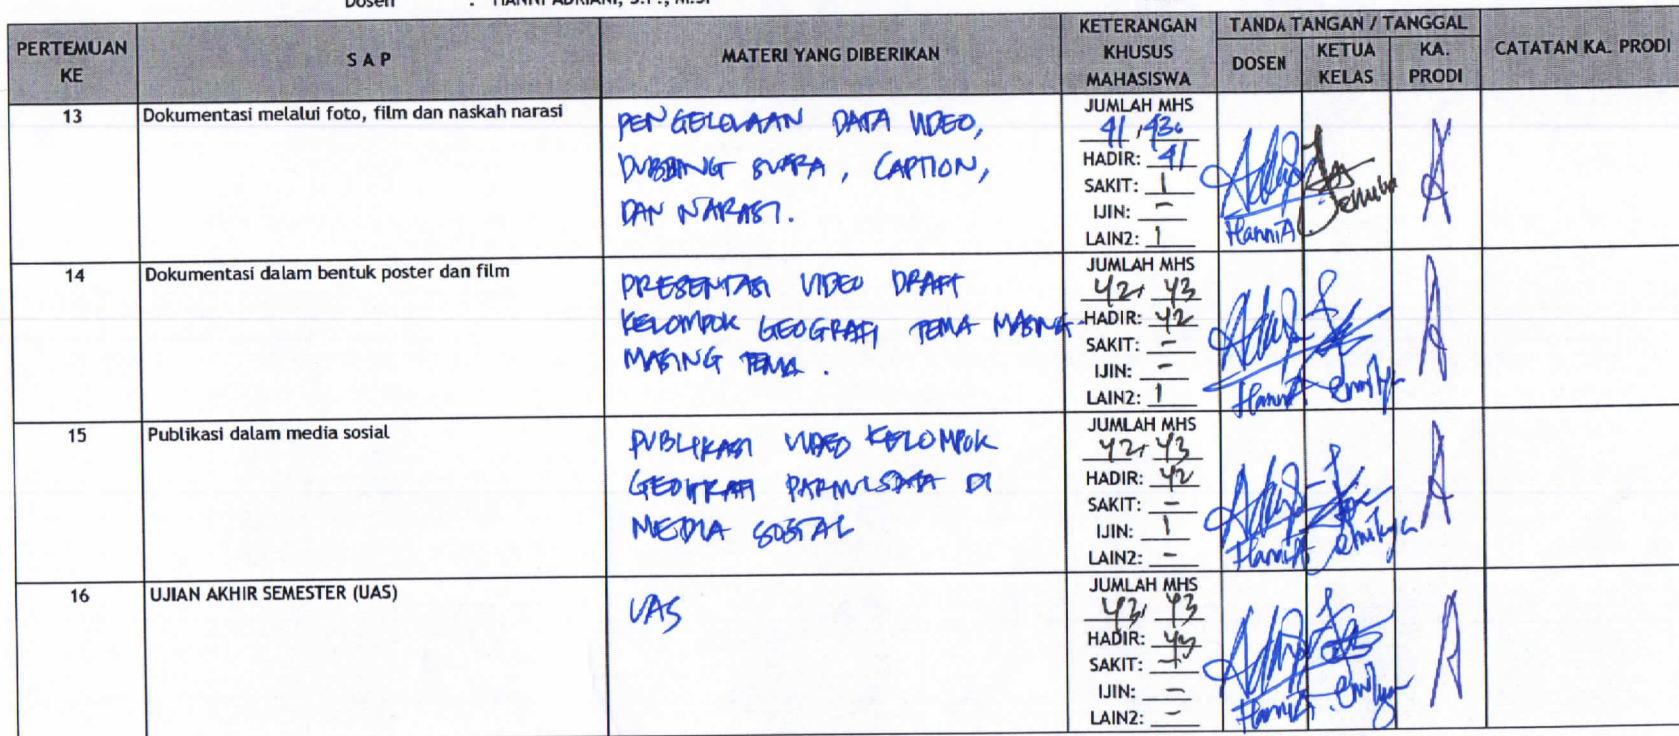 Dosen : HANNI ADRIANI, S.P., M.Si
PERTEMUAN KE
S A P
MATERI YANG DIBERIKAN
KETERANGAN KHUSUS MAHASISWA
TANDA TANGAN / TANGGAL
DOSEN
KETUA KELAS
KA. PRODI
CATATAN KA. PRODI
13
Dokumentasi melalui foto, film dan naskah narasi
PENGELOLAAN DATA VIDEO,
DUBBING SUARA, CAPTION,
DAN NARASI.
JUMLAH MHS
41
HADIR: 41
SAKIT: 1
IJIN: -
LAIN2: 1
HanniA
14
Dokumentasi dalam bentuk poster dan film
PRESENTASI VIDEO DRAFT
KELOMPOK GEOGRAFI TEMA MASING-
MASING TEMA.
JUMLAH MHS
42, 43
HADIR: 42
SAKIT: -
IJIN: -
LAIN2: 1
HanniA
15
Publikasi dalam media sosial
PUBLIKASI VIDEO KELOMPOK
GEOGRAFI PARIWISATA DI
MEDIA SOSIAL
JUMLAH MHS
42, 43
HADIR: 42
SAKIT: -
IJIN: 1
LAIN2: -
HanniA
16
UJIAN AKHIR SEMESTER (UAS)
UAS
JUMLAH MHS
43, 43
HADIR: 43
SAKIT: -
IJIN: -
LAIN2: -
HanniA